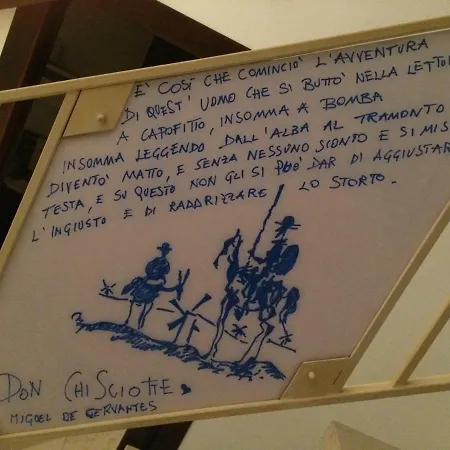 E' COSÌ CHE COMINCIÒ L'AVVENTURA
DI QUEST' UOMO CHE SI BUTTO' NELLA LETTU
A CAPOFITTO, INSOMMA A BOMBA
INSOMMA LEGGENDO DALL'ALBA AL TRAMONTO
DIVENTO' MATTO, E SENZA NESSUNO SCONTO E SI MIS
TESTA, E SU QUESTO NON GLI SI PUO' DAR DI AGGIUSTAR
L'INGIUSTO E DI RADDRIZZARE LO STORTO.
DON CHISCIOTTE
MIGUEL DE CERVANTES